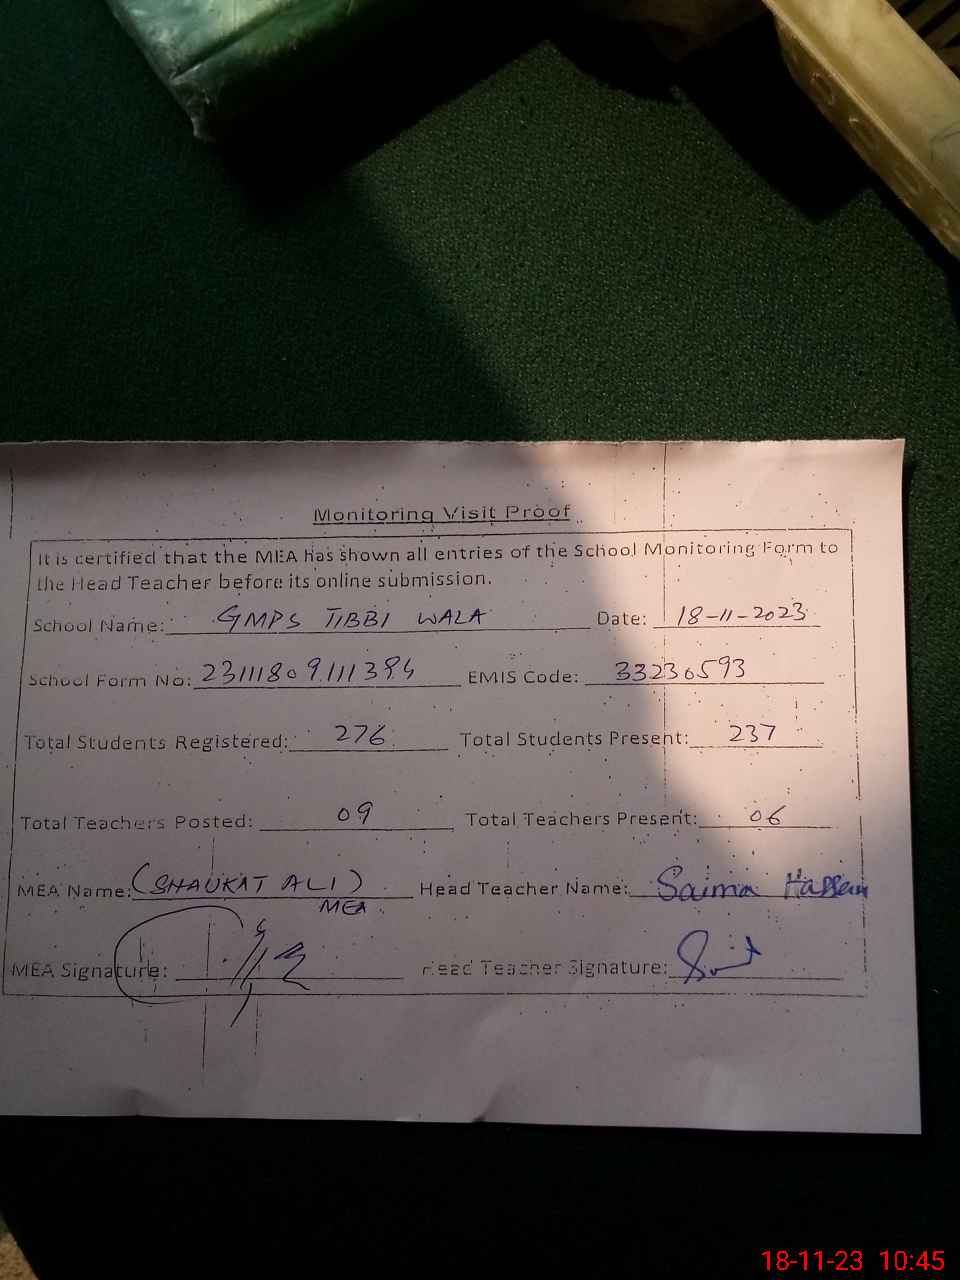 Monitoring Visit Proof
It is certified that the MEA has shown all entries of the School Monitoring Form to
the Head Teacher before its online submission.
School Name: GMPS TIBBI WALA Date: 18-11-2023
School Form No: 23111809111394 EMIS Code: 33230593
Total Students Registered: 276 Total Students Present: 237
Total Teachers Posted: 09 Total Teachers Present: 06
MEA Name: (SHAUKAT ALI) Head Teacher Name: Saima Hassan
MEA
MEA Signature: Head Teacher Signature:
18-11-23 10:45